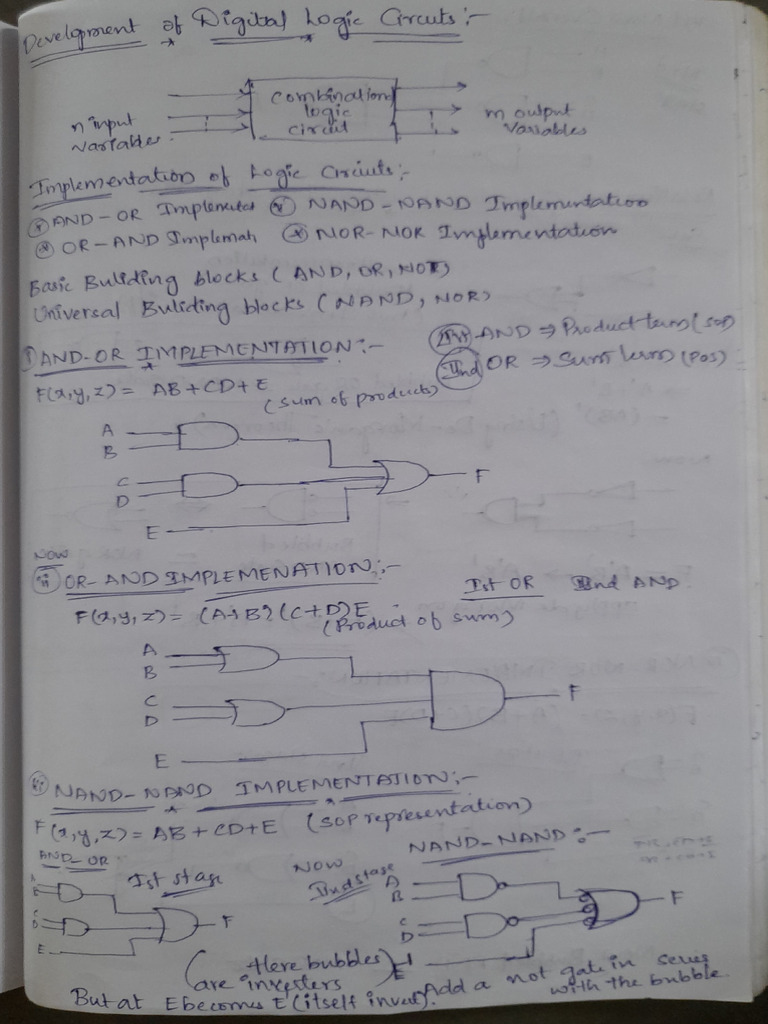 Development of Digital Logic Circuts :-
n input variables
combinational logic circuit
m output variables
Implementation of Logic Circuits :-
AND-OR Implementat NAND-NAND Implementation
OR-AND Implemah NOR-NOR Implementation
Basic Buliding blocks (AND, OR, NOT)
Universal Buliding blocks (NAND, NOR)
Ist AND ⇒ Product term (SOP)
i AND-OR IMPLEMENTATION :-
IInd OR ⇒ Sum term (POS)
F(x,y,z) = AB + CD + E
(sum of products)
A
B
C
D
E
F
NOW
ii OR-AND IMPLEMENATION :-
Ist OR IInd AND
F(x,y,z) = (A+B) (C+D)E
(Product of sum)
A
B
C
D
E
F
iii NAND-NAND IMPLEMENTATION :-
F(x,y,z) = AB + CD + E (SOP representation)
AND-OR
Ist stage
A
B
C
D
E
F
NOW
IInd stage
NAND-NAND :-
A
B
C
D
E
F
(Here bubbles are inverters)
But at E becomes E (itself invert).
Add a not gate in series with the bubble